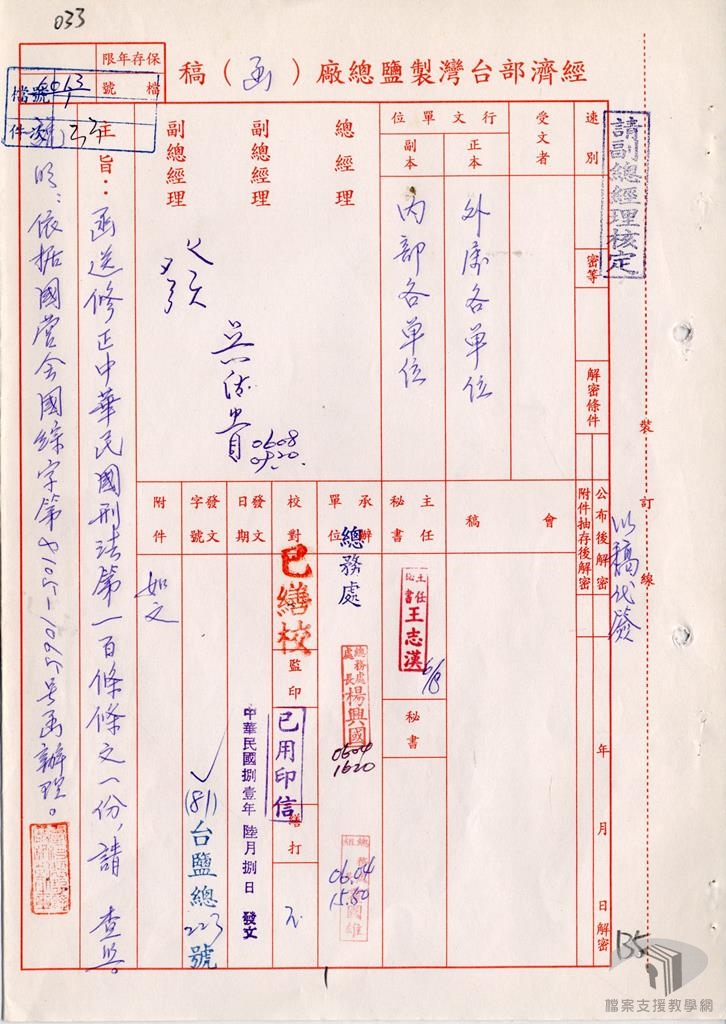 033
經濟部台灣製鹽總廠（函）稿
保存年限
檔號
檔號 6063
1
件次 33
請副總經理核定
速別
密等
解密條件
公布後解密
附件抽存後解密
年 月 日解密
裝訂線
以稿代簽
受文者
行文單位
正本
副本
外屬各單位
內部各單位
總經理
副總經理
副總經理
發
0608
0920
會稿
主任秘書
主任秘書王志漢
6/8
秘書
承辦單位
總務處
總務處處長楊興國
0604
1620
06.04
15.50
校對
已繕校
監印
已用印信
繕打
發文日期
中華民國捌壹年陸月捌日 發文
發文字號
(81)台鹽總223號
附件
如文
主旨：函送修正中華民國刑法第一百條條文一份，請 查照。
說明：依據國營會國綜字第8105-1095號函辦理。
135
檔案支援教學網